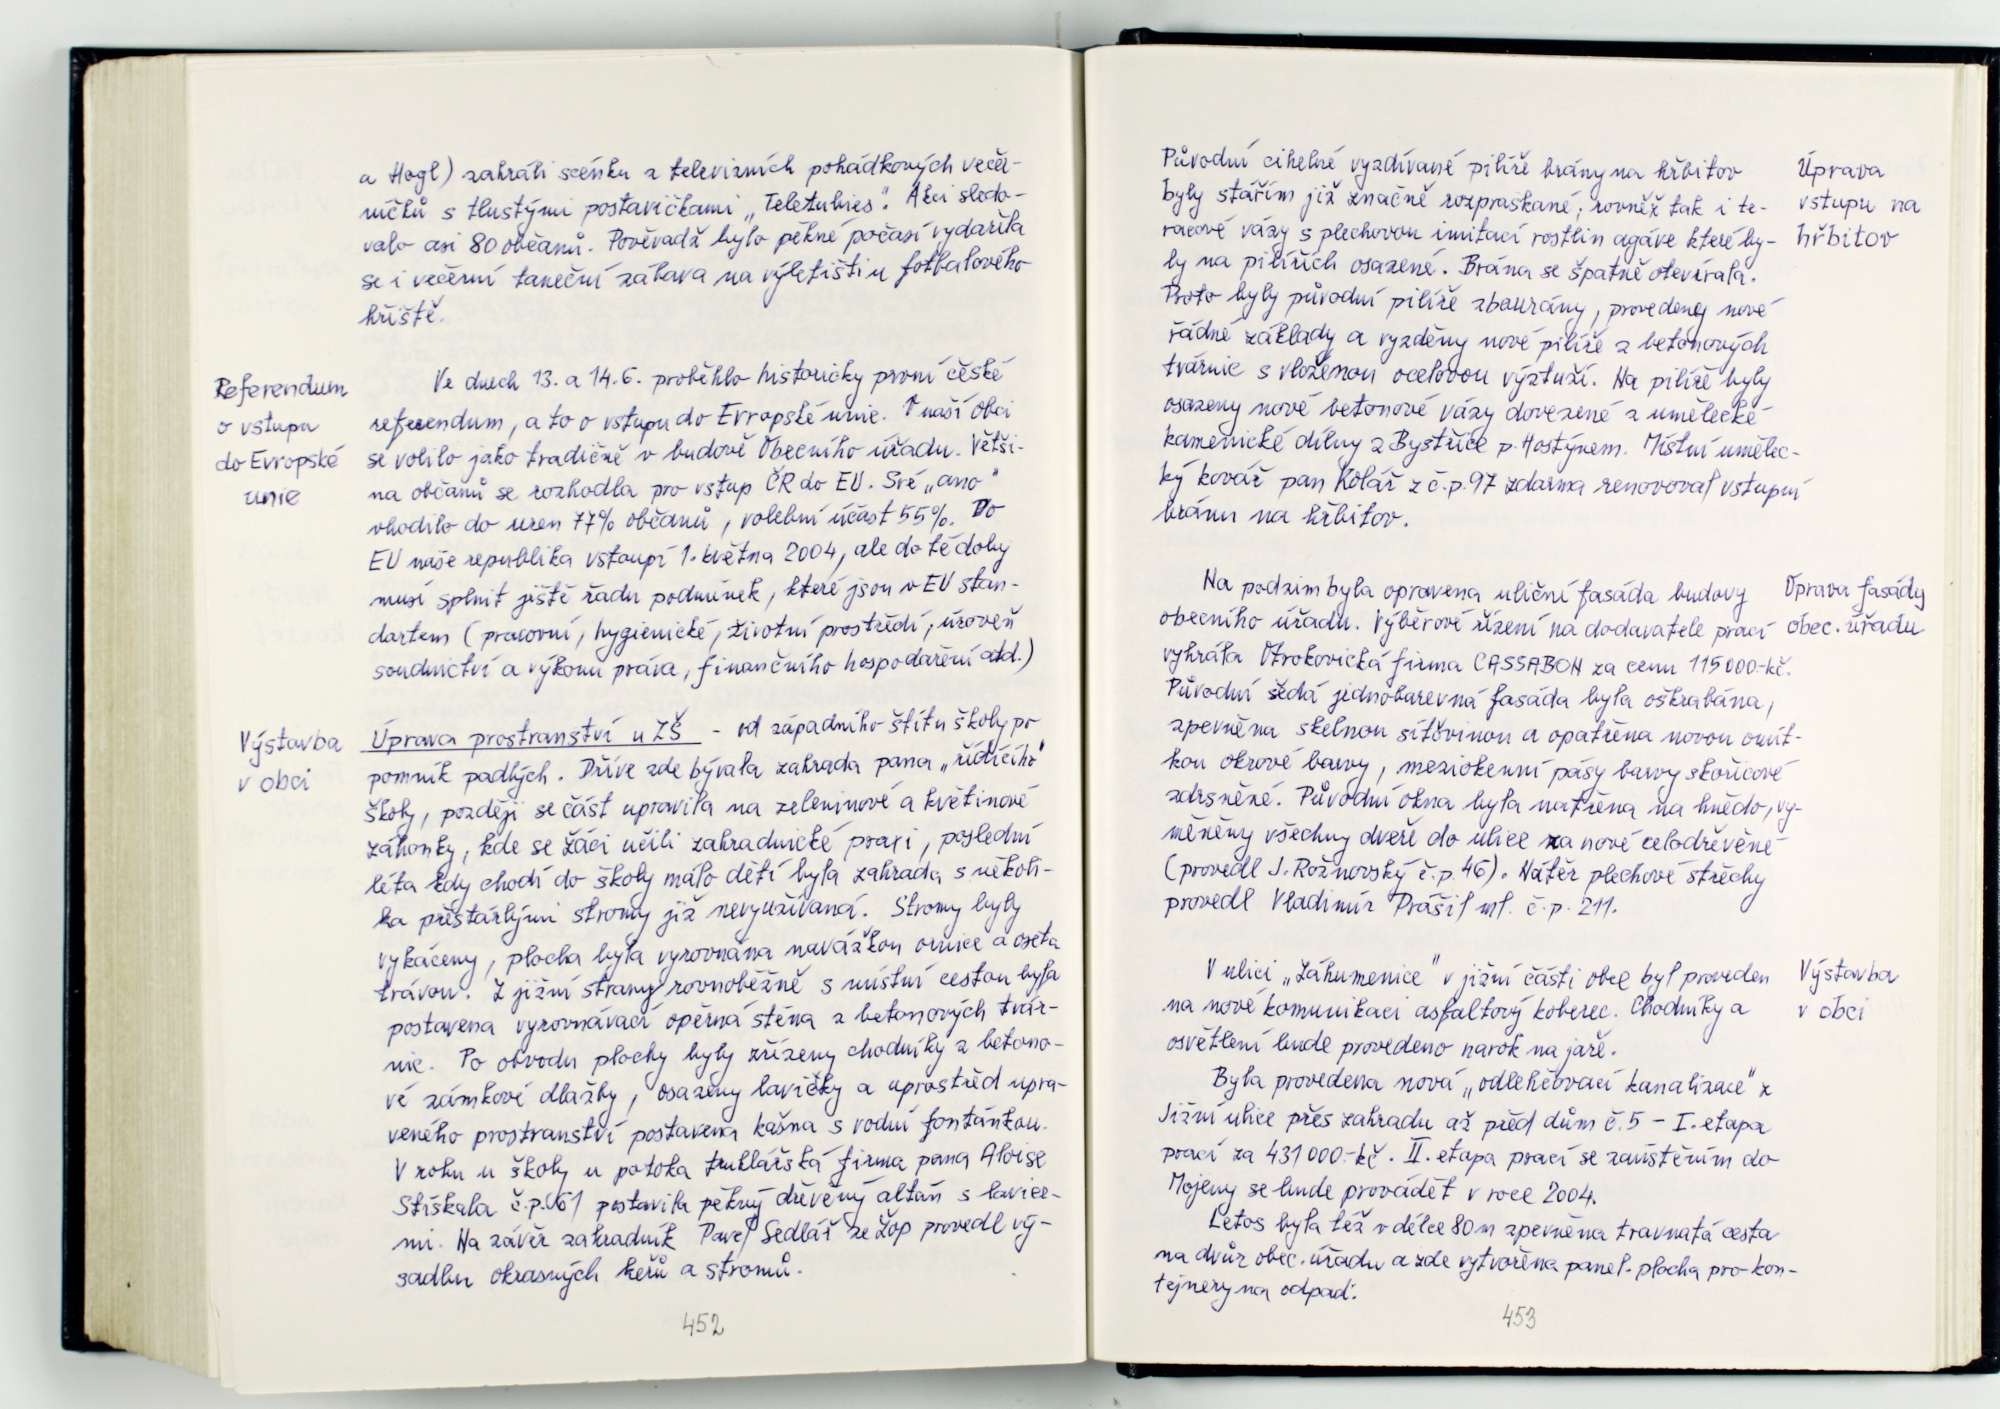 a Hogl) zahráli scénku z televizních pohádkových večer-
níčků s tlustými postavičkami „Teletubies“. Akci sledo-
valo asi 80 občanů. Poněvadž bylo pěkné počasí vydařila
se i večerní taneční zábava na výletišti u fotbalového
hřiště.
Referendum
o vstupu
do Evropské
unie
Ve dnech 13. a 14.6. proběhlo historicky první české
referendum, a to o vstupu do Evropské unie. V naší obci
se volilo jako tradičně v budově Obecního úřadu. Větši-
na občanů se rozhodla pro vstup ČR do EU. Své „ano“
vhodilo do uren 77% občanů, volební účast 55%. Do
EU naše republika vstoupí 1. května 2004, ale do té doby
musí splnit ještě řadu podmínek, které jsou v EU stan-
dartem (pracovní, hygienické, životní prostředí, úroveň
soudnictví a výkonu práva, finančního hospodaření atd.)
Výstavba
v obci
Úprava prostranství u ZŠ - od západního štítu školy po
pomník padlých. Dříve zde bývala zahrada pana „řídícího“
školy, později se část upravila na zeleninové a květinové
záhonky, kde se žáci učili zahradnické praxi, poslední
léta kdy chodí do školy málo dětí byla zahrada s několi-
ka přestárlými stromy již nevyužívaná. Stromy byly
vykáceny, plocha byla vyrovnána navážkou ornice a oseta
trávou. Z jižní strany rovnoběžně s místní cestou byla
postavena vyrovnávací opěrná stěna z betonových tvár-
nic. Po obvodu plochy byly zřízeny chodníky z betono-
vé zámkové dlažby, osazeny lavičky a uprostřed upra-
veného prostranství postavena kašna s vodní fontánkou.
V rohu u školy u potoka truhlářská firma pana Aloise
Stískala č.p. 61 postavila pěkný dřevěný altán s lavice-
mi. Na závěr zahradník Pavel Sedlář ze Žop provedl vý-
sadbu okrasných keřů a stromů.
452
Původní cihelné vyzdívané pilíře brány na hřbitov
byly stářím již značně rozpraskané, rovněž tak i te-
racové vázy s plechovou imitací rostlin agáve které by-
ly na pilířích osazené. Brána se špatně otevírala.
Proto byly původní pilíře zbourány, provedeny nové
řádné základy a vyzděny nové pilíře z betonových
tvárnic s vloženou ocelovou výztuží. Na pilíře byly
osazeny nové betonové vázy dovezené z umělecké
kamenické dílny z Bystřice p. Hostýnem. Místní umělec-
ký kovář pan Kolář z č.p. 97 zdarma renovoval vstupní
bránu na hřbitov.
Úprava
vstupu na
hřbitov
Na podzim byla opravena uliční fasáda budovy
obecního úřadu. Výběrové řízení na dodavatele prací
vyhrála Otrokovická firma CASSABON za cenu 115000.-kč.
Původní šedá jednobarevná fasáda byla oškrabána,
zpevněna skelnou síťovinou a opatřena novou omít-
kou okrové barvy, meziokenní pásy barvy skořicové
zdrsněné. Původní okna byla natřena na hnědo, vy-
měněny všechny dveře do ulice za nové celodřevěné
(provedl J. Rožnovský č.p. 46). Nátěr plechové střechy
provedl Vladimír Prášil ml. č.p. 211.
Oprava fasády
obec. úřadu
V ulici „Záhumenice“ v jižní části obce byl proveden
na nové komunikaci asfaltový koberec. Chodníky a
osvětlení bude provedeno narok na jaře.
Byla provedena nová „odlehčovací kanalizace“ z
Jižní ulice přes zahradu až před dům č.5 - I. etapa
prací za 431000.-kč. II. etapa prací se zaústěním do
Mojeny se bude provádět v roce 2004.
Letos byla též v délce 80m zpevněna travnatá cesta
na dvůr obec. úřadu a zde vytvořena panel. plocha pro kon-
tejnery na odpad.
Výstavba
v obci
453